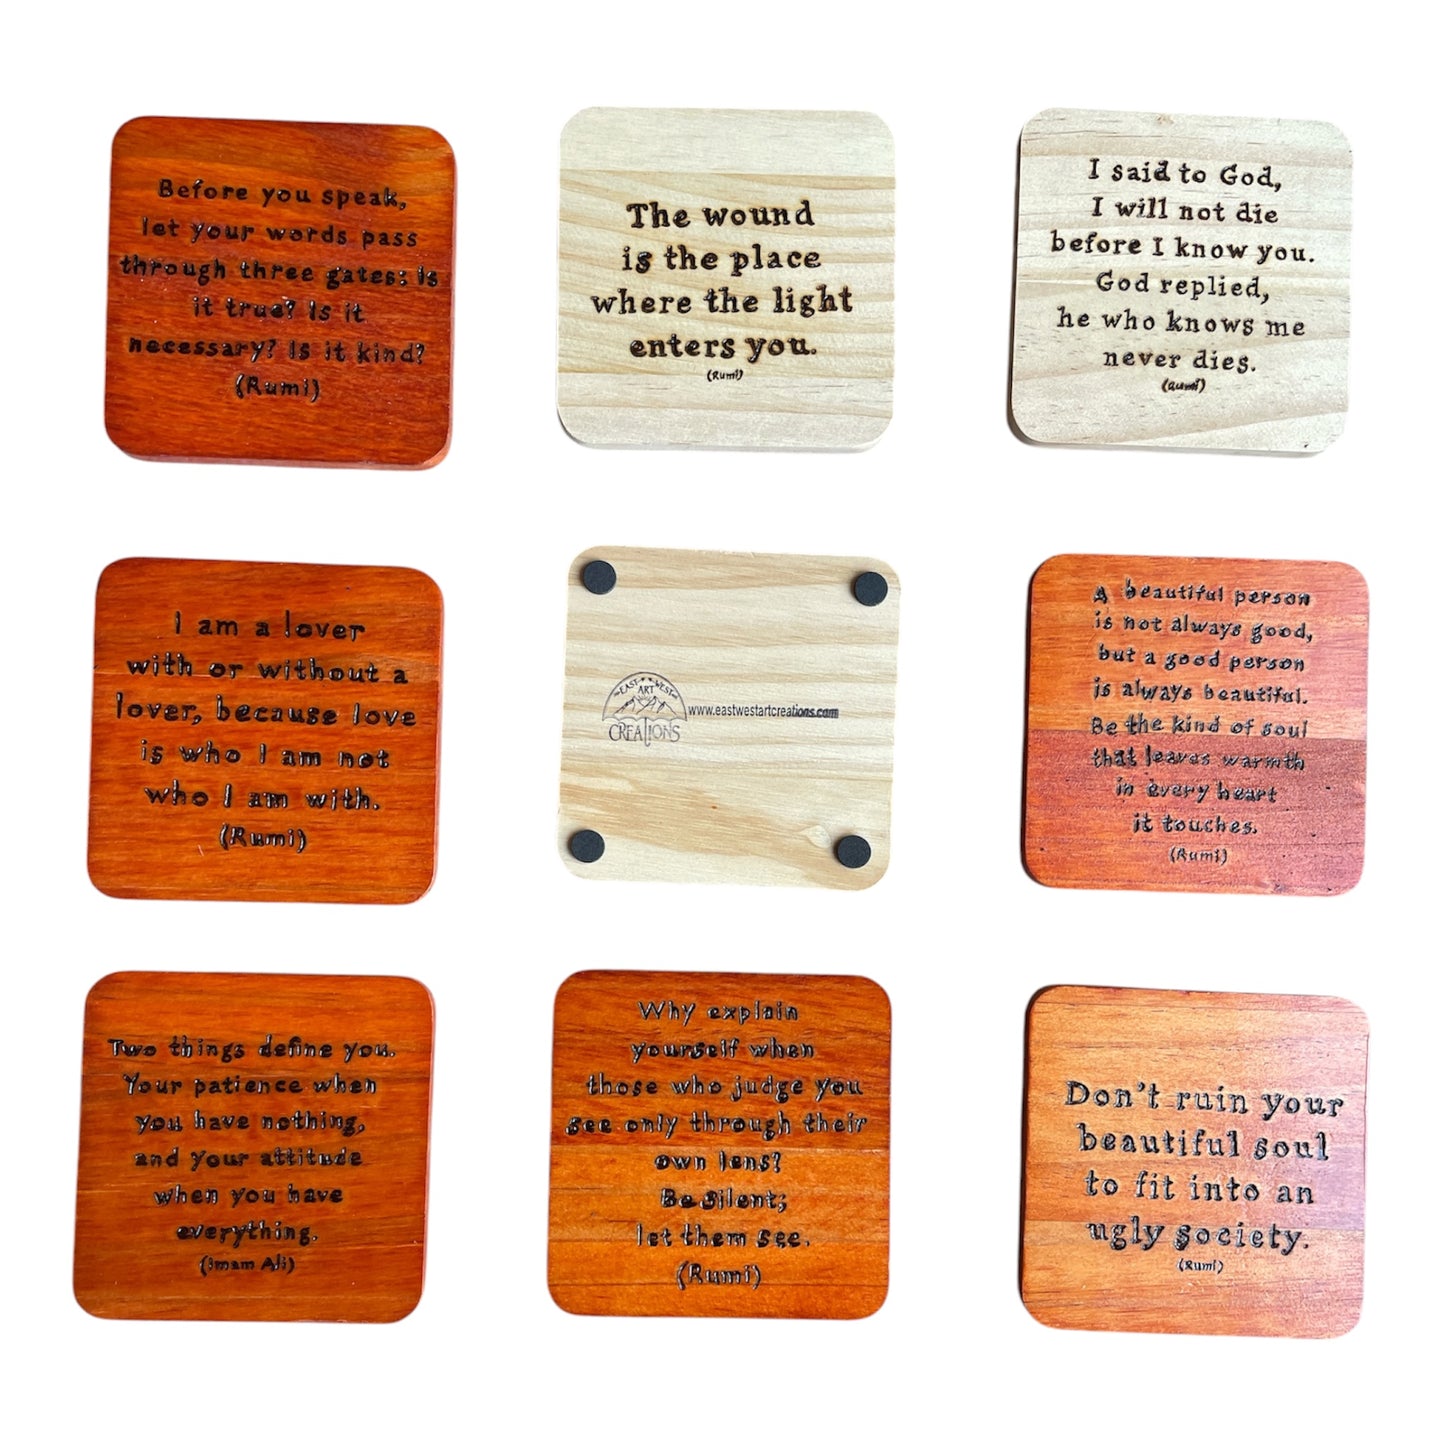 Before you speak,
let your words pass
through three gates: Is
it true? Is it
necessary? Is it kind?
(Rumi)
The wound
is the place
where the light
enters you.
(Rumi)
I said to God,
I will not die
before I know you.
God replied,
he who knows me
never dies.
(Rumi)
I am a lover
with or without a
lover, because love
is who I am not
who I am with.
(Rumi)
EAST WEST
ART
CREATIONS
www.eastwestartcreations.com
A beautiful person
is not always good,
but a good person
is always beautiful.
Be the kind of soul
that leaves warmth
in every heart
it touches.
(Rumi)
Two things define you.
Your patience when
you have nothing,
and your attitude
when you have
everything.
(Imam Ali)
Why explain
yourself when
those who judge you
see only through their
own lens?
Be Silent;
let them see.
(Rumi)
Don't ruin your
beautiful soul
to fit into an
ugly society.
(Rumi)